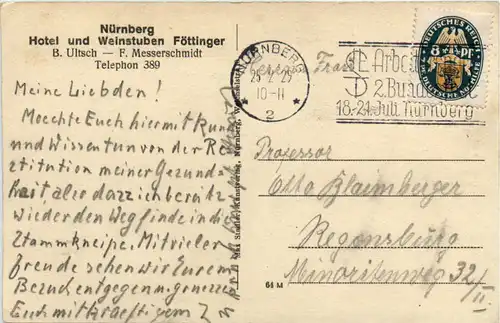 Nürnberg
Hotel und Weinstuben Föttinger
B. Ultsch — F. Messerschmidt
Telephon 389
Meine Liebden!
Moechte Euch hiermit kund
und Wissen tun von der Re
stitution meiner Gesund
heit, also dazz ich bereitz
wieder den Weg finde in die
Ztammkneipe. Mit vieler
Freude sehen wir Eurem
Bezuch entgegen u. gruezzen
Euch mit kraeftigem Z
NÜRNBERG
10-11
2
DEUTSCHES REICH
8 Pf
Arbeiter
2. Bundes
18.-21. Juli Nürnberg
Frau
Professor
Otto Blaimberger
Regensburg
Minoritenweg 32/II
64 M